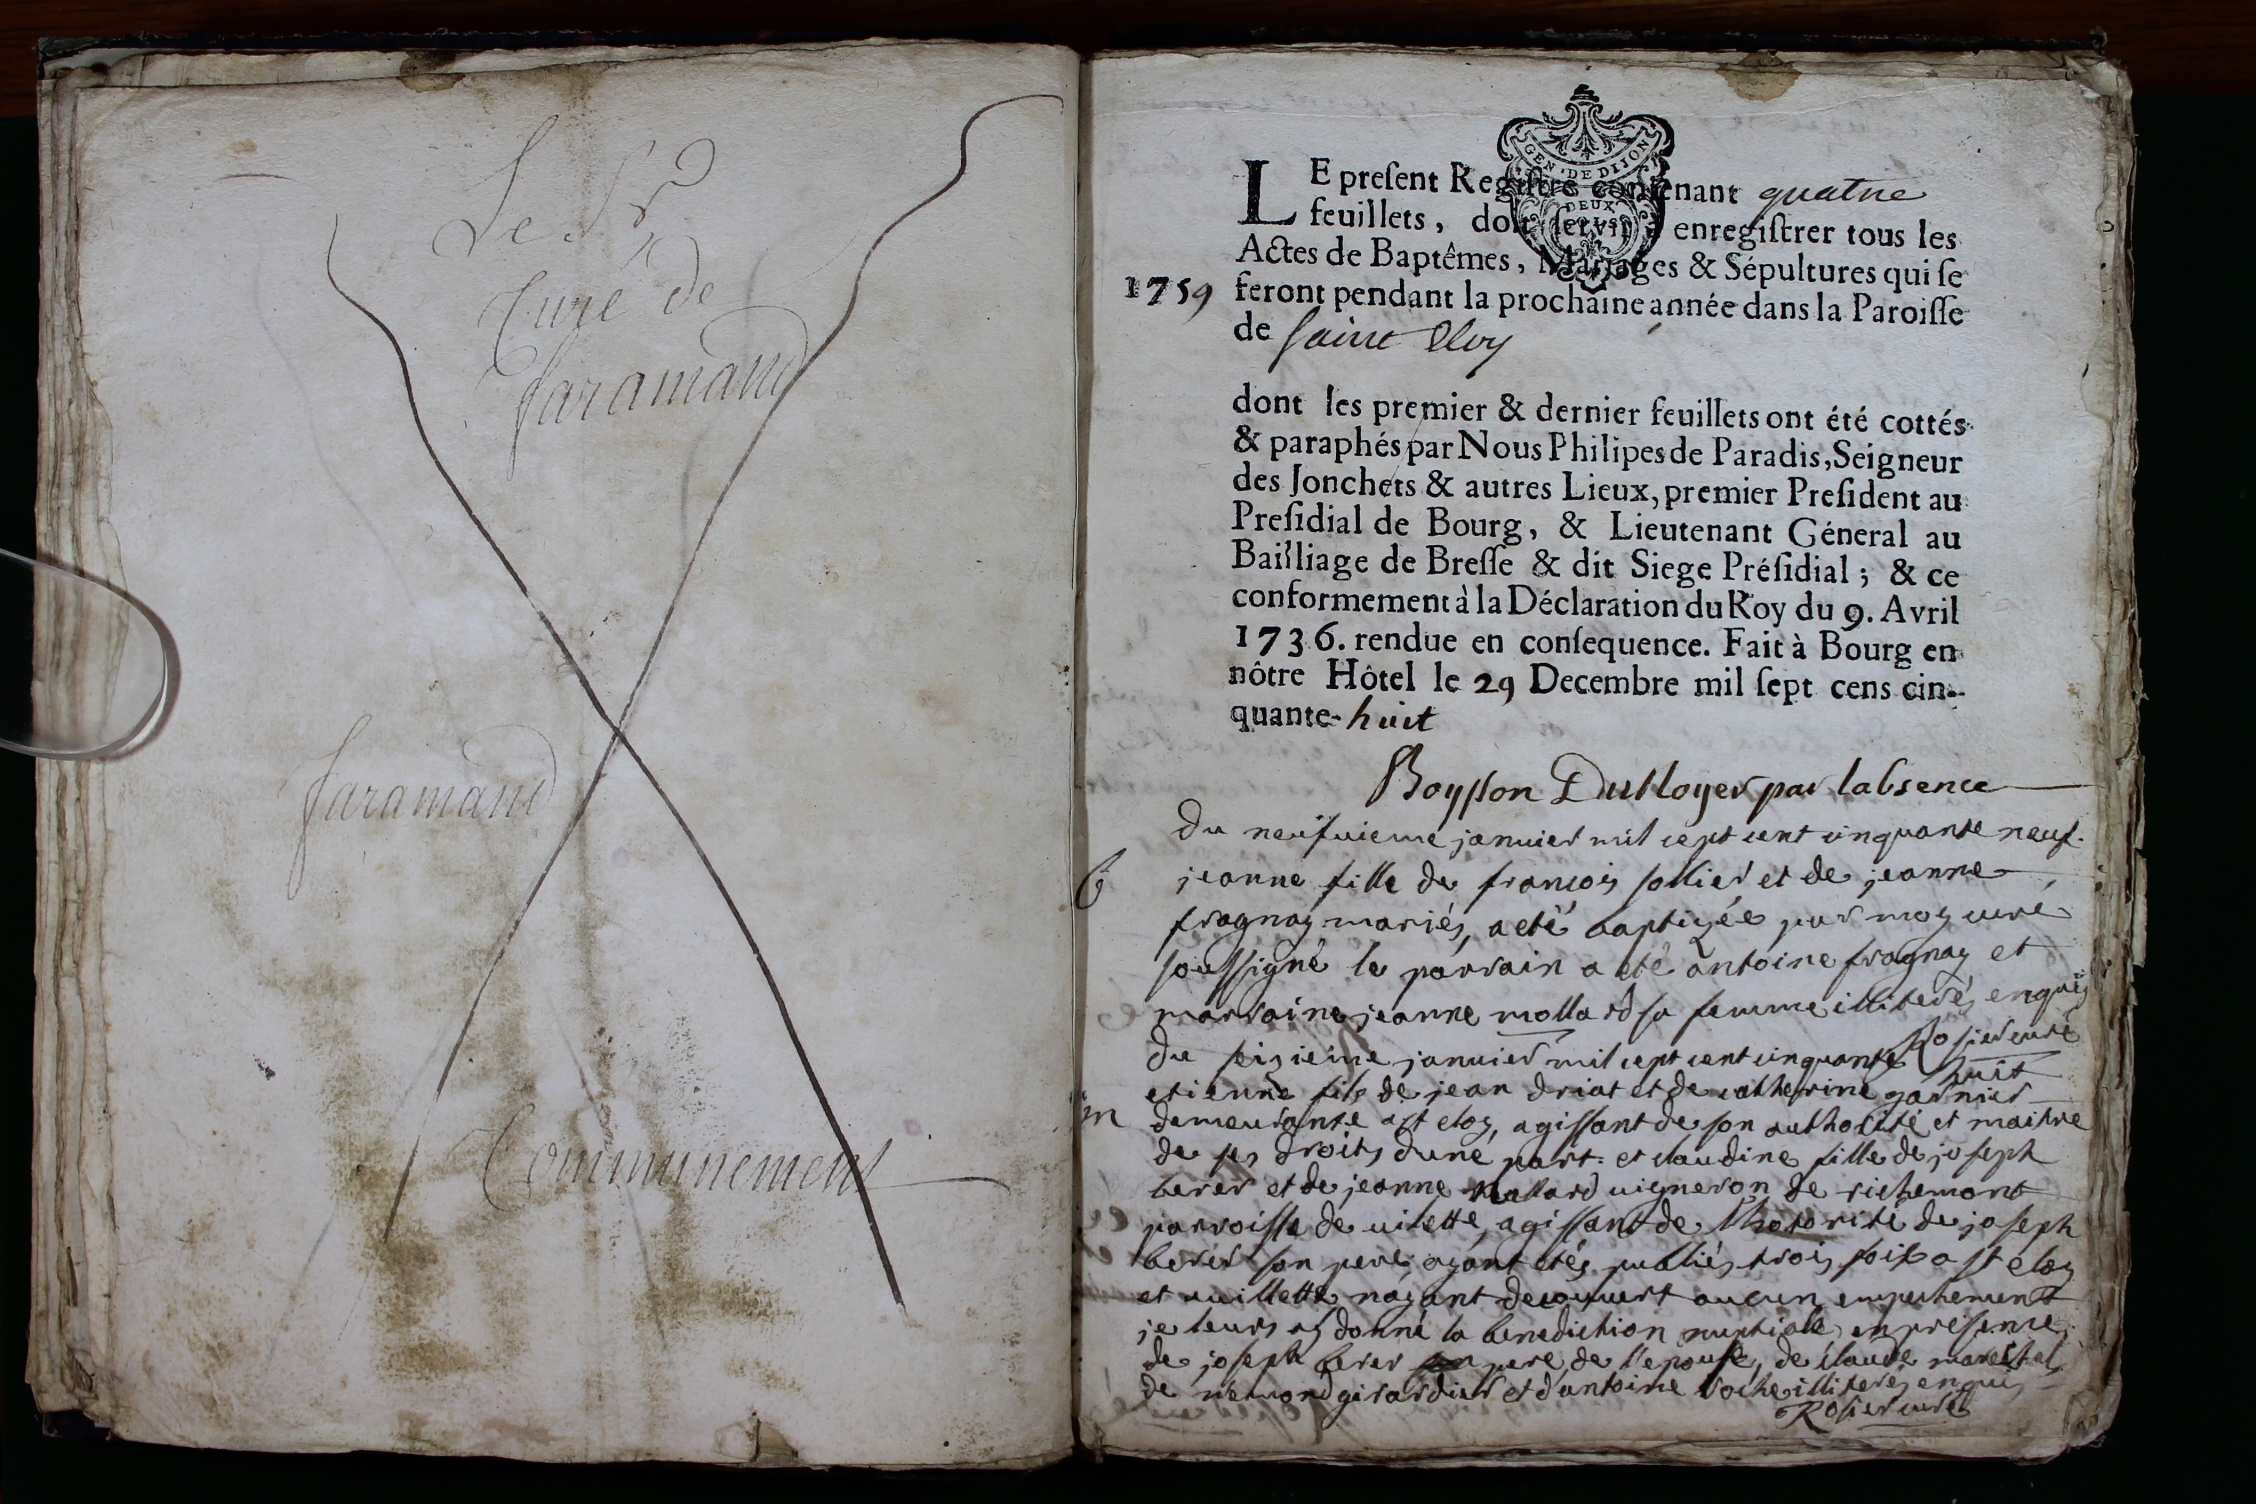 Le Sr
Curé de
faramand
faramand
Communement
GEN. DE DIJON
DEUX
LE present Registre contenant quatre
feuillets, doit servir à enregistrer tous les
Actes de Baptêmes, Mariages & Sépultures qui se
1759 feront pendant la prochaine année dans la Paroisse
de saint Eloy
dont les premier & dernier feuillets ont été cottés
& paraphés par Nous Philipes de Paradis, Seigneur
des Jonchets & autres Lieux, premier President au
Presidial de Bourg, & Lieutenant Géneral au
Bailliage de Bresse & dit Siege Présidial; & ce
conformement à la Déclaration du Roy du 9. Avril
1736. rendue en consequence. Fait à Bourg en
nôtre Hôtel le 29 Decembre mil sept cens cin-
quante-huit
par labsence
du neufuieme januier mil sept cent cinquante neuf.
b jeanne fille de françois sollier et de jeanne
fragnay mariés, a eté baptizée par moy curé
soussigné le parrain a eté antoine fragnay et
marraine jeanne mollard sa femme illiterés enquis
Rosier curé
du seizieme januier mil sept cent cinquante huit
etienne fils de jean driat et de catherine garnier
m demeurante a st eloy, agissant de son authorité et maitre
de ses droits dune part. et claudine fille de joseph
berer et de jeanne mallard uigneron de richemont
parroisse de uilette, agissant de lhotorité de joseph
berer son pere, ayant etés publiés trois fois a st eloy
et uuillette nayant decouuert aucun empechement
je leurs ay donné la benediction nuptiale en présence
de joseph berer pere de l'epouse, de claude marechal,
de remond girardier et d'antoine roche illiterés enquis
Rosier curé